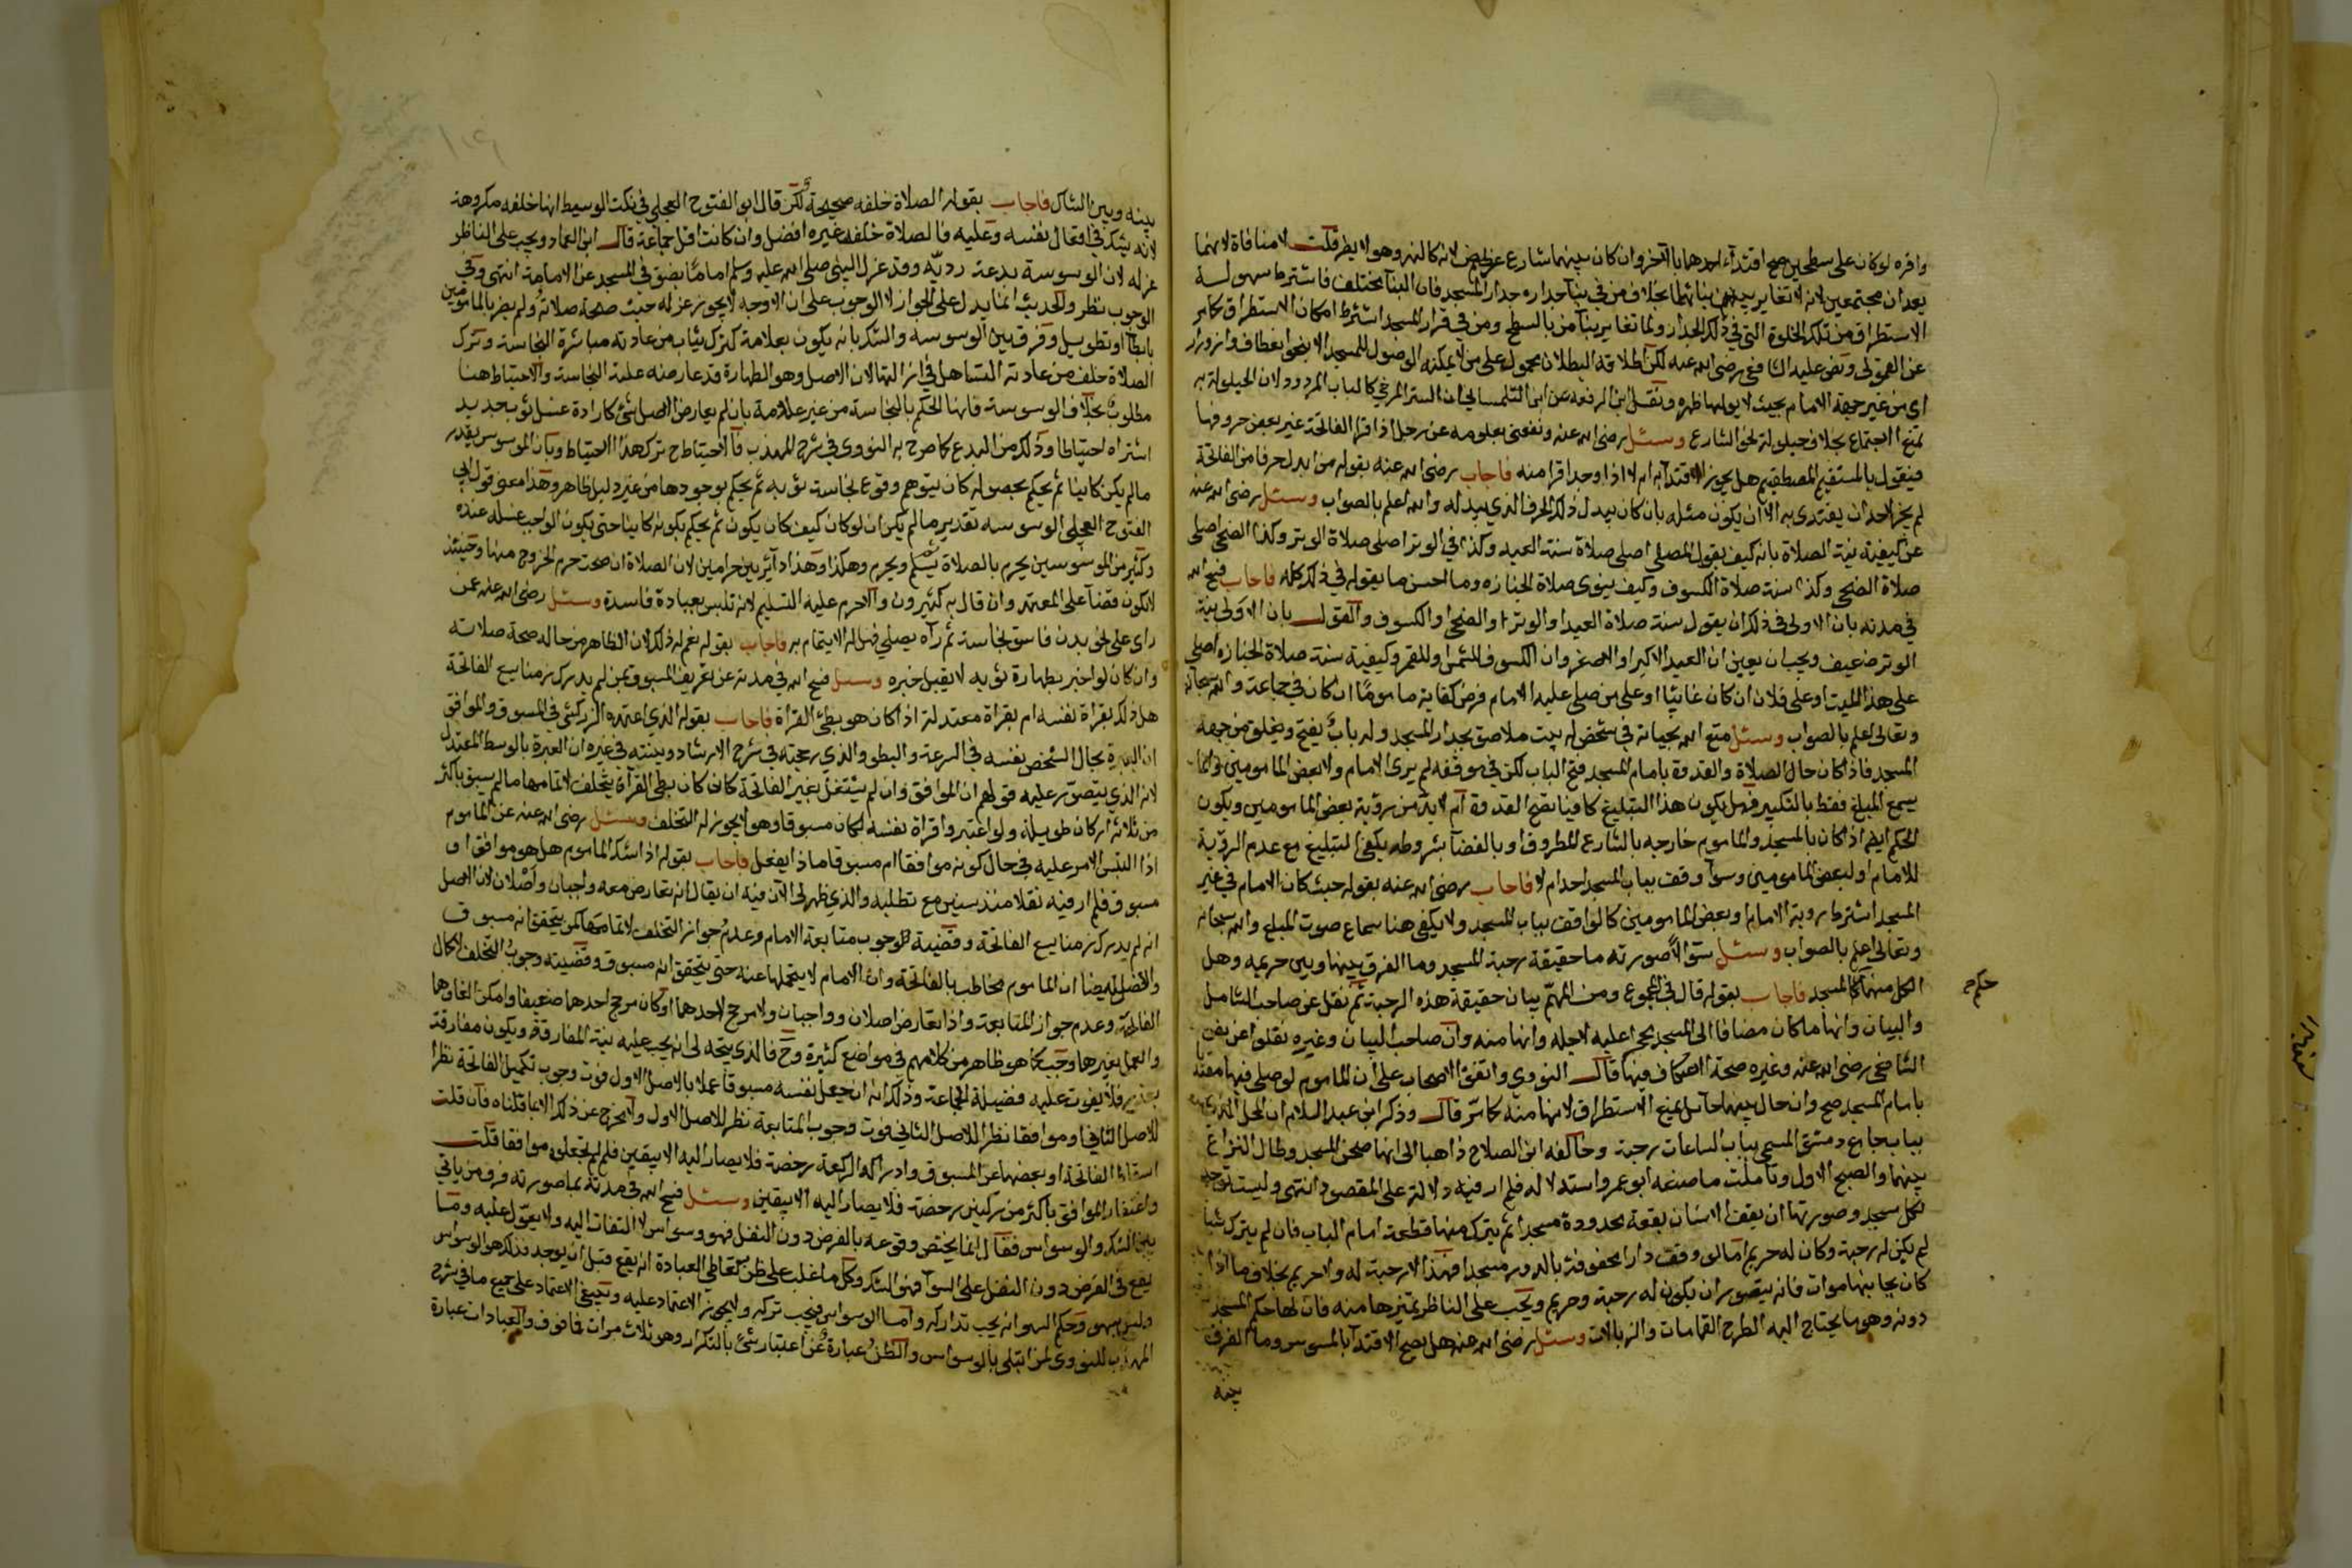 واقره لو كان على سطحين صح اقتداء احدهما بالاخر وان كان بينهما شارع عريض لانه كالنهر وهو لا يضر قلت لا منافاة لانهما
يعدان مجتمعين لانه لا تغاير بينهما بخلاف من في بناء جداره جدار المسجد فان البنا مختلف فاشترط سهولة
الاستطراق من تلك الخلوة التي في ذلك الجدار ولما تغاير بناء من بالسطح ومن في قرار المسجد اشترط امكان الاستطراق كما مر
عن القمولي ونص عليه الشافعي رضي الله عنه لكن اطلاقه البطلان محمول على من لا يمكنه الوصول للمسجد الا بنحو انعطاف وازورار
اي من غير جهة الامام بحيث لا يوليها ظهره ونقل ابن الرفعة عن ابن التلمساني ان الستر المرخى كالباب المردود لان الحيلولة به
تمنع الاجتماع بخلاف حيلولة نحو الشارع وسئل رضي الله عنه ونفعنى بعلومه عن رجل اذا قرا الفاتحة غير بعض حروفها
فيقول بالمستقيم المصطقيم هل يجوز الاقتداء به ام لا اذا وجد اقرا منه فاجاب رضي الله عنه بقوله من ابدل حرفا من الفاتحة
لم يجز لاحد ان يقتدى به الا ان يكون مثله بان كان يبدل ذلك الحرف الذي يبدله والله اعلم بالصواب وسئل رضي الله عنه
عن كيفية نية الصلاة بانه كيف يقول المصلي اصلي صلاة سنة العيد وكذا في الوتر اصلي صلاة الوتر وكذا الضحى اصلي
صلاة الضحى وكذا سنة صلاة الكسوف وكيف ينوى صلاة الجنازه وما احسن ما يقوله في ذلك كله فاجاب فسح الله
في مدته بان الاولى في ذلك ان يقول سنة صلاة العيد او الوتر او الضحى او الكسوف والقول بان الاولى بنية
الوتر ضعيف ويجب ان يعين ان العيد الاكبر او الاصغر وان الكسوف للشمس او للقمر وكيفية سنة صلاة الجنازه اصلي
على هذا الميت او على فلان ان كان غائبا او على من صلى عليه الامام فرض كفاية ماموما ان كان في جماعة والله سبحانه
وتعالى اعلم بالصواب وسئل متع الله بحياته في شخص له بيت ملاصق بجدار المسجد وله باب يفتح ويغلق من جهة
المسجد فاذا كان حال الصلاة والقدوة بامام المسجد فتح الباب لكن في موقفه لم يرى الامام ولا بعض المامومين وانما
يسمع المبلغ فقط بالتكبير فهل يكون هذا التبليغ كافيا بصح القدوة ام لا بد من رؤية بعض المامومين ويكون
الحكم ايضا اذا كان بالمسجد والماموم خارجه بالشارع المطروق او بالفضا بشروطه يكفى التبليغ مع عدم الرؤية
للامام او لبعض المامومين وسوآ وقف بباب المسجد احد ام لا فاجاب رضي الله عنه بقوله حيث كان الامام في غير
المسجد اشترط روية الامام او بعض المامومين كالواقف بباب المسجد ولا يكفى هنا سماع صوت المبلغ والله سبحانه
وتعالى اعلم بالصواب وسئل سؤالا صورته ما حقيقة رحبة المسجد وما الفرق بينها وبين حريمه وهل
لكل منهما حكم المسجد فاجاب بقوله قال في المجموع ومن المهم بيان حقيقة هذه الرحبة ثم نقل عن صاحب الشامل
والبيان وانها ما كان مضافا الى المسجد محجرا عليه لاجله وانها منه وان صاحب البيان وغيره نقلوا عن نص
الشافعي رضي الله عنه وغيره صحة الاعتكاف فيها قال النووي واتفق الاصحاب على ان الماموم لو صلى فيها مقتديا
بامام المسجد صح وان حال بينهما حائل يمنع الاستطراق لانها منه كما مر قال وذكر ابن عبد السلام ان المحل
بباب جامع دمشق المسمى بباب الساعات رحبة وخالفه ابن الصلاح ذاهبا الى انها صحن المسجد وطال النزاع
بينهما والصحيح الاول وتاملت ما صنعه ابو عمرو واستدلاله فلم ار فيه دلالة على المقصود انتهى وليست توجد
لكل مسجد وصورتها ان يقف الانسان بقعة محدودة مسجدا ثم يترك منها قطعة امام الباب فان لم يترك شيا
لم يكن له رحبة وكان له حريم اما لو وقف دارا محفوفة بالدور مسجدا فهذا لا رحبة له ولا حريم بخلاف ما اذا
كان بجانبها موات فانه يتصور ان يكون له رحبة وحريم ويجب على الناظر تمييزها منه فان لها حكم المسجد
دونه وهو ما يحتاج اليه لطرح القمامات والزبالات وسئل رضي الله عنه هل يصح الاقتدآ بالموسوس وما الفرق
بينه
حكم
بينه وبين الشاك فاجاب بقوله الصلاة خلفه صحيحة لكن قال ابو الفتوح العجلي في نكت الوسيط انها خلفه مكروهة
لانه يشك في افعال نفسه وعليه فالصلاة خلف غيره افضل وان كانت اقل جماعة قال ابن العماد ويجب على الناظر
عزله لان الوسوسة بدعة رديه وقد عزل النبي صلى الله عليه وسلم اماما بصق في المسجد عن الامامة انتهى وفي
الوجوب نظر والحديث انما يدل على الجواز لا الوجوب على ان الاوجه لا يجوز عزله حيث صحة صلاته ولم يضر بالمامومين
بابطآ او تطويل وفرق بين الوسوسه والشك بانه يكون بعلامة كترك ثياب من عادته مباشرة النجاسة وترك
الصلاة خلف من عادته التساهل في ازالتها لان الاصل وهو الطهارة قد عارضه غلبة النجاسة والاحتياط هنا
مطلوب بخلاف الوسوسة فانها الحكم بالنجاسة من غير علامة بان لم يعارض الاصل شئ كارادة غسل ثوب جديد
اشتراه احتياطا وذلك من البدع كما صرح به النووى في شرح المهذب فالاحتياط ح ترك هذا الاحتياط وبان الموسوس يقدر
مالم يكن كاينا ثم يحكم بحصوله كان يتوهم وقوع نجاسة بثوبه ثم يحكم بوجودها من غير دليل ظاهر وهذا معنى قول ابي
الفتوح العجلي الوسوسه تقدير ما لم يكن ان لو كان كيف كان يكون ثم يحكم بكونه كاينا حتى يكون الواجب غسله عنده
وكثير من الموسوسين يحرم بالصلاة ثم يسلم ويحرم وهكذا وهذا دائر بين حرامين لان الصلاة ان صحت حرم الخروج منها وحينئذ
لا تكون قضآ على المعتمد وان قال به كثيرون والا حرم عليه التسليم لانه تلبس بعبادة فاسدة وسئل رضي الله عنه عمن
راى على نحو بدن فاسق نجاسة ثم رآه يصلي فهل له الايتمام به فاجاب بقوله نعم له ذلك لان الظاهر من حاله صحة صلاته
وان كان لو اخبر بطهارة ثوبه لا يقبل خبره وسئل فسح الله في مدته عن تعريف المسبوق بمن لم يدرك زمنا يسع الفاتحة
هل ذلك بقراة نفسه ام بقراة معتدلة اذا كان هو بطئ القراة فاجاب بقوله الذي اعتمده الزركشي في المسبوق والموافق
ان العبرة بحال الشخص نفسه في السرعة والبطو والذي رجحته في شرح الارشاد وبينته في غيره ان العبرة بالوسط المعتدل
لانه الذي يتصور عليه قولهم ان الموافق وان لم يشتغل بغير الفاتحة كان كان بطئ القرآة يتخلف لاتمامها ما لم يسبق باكثر
من ثلاثة اركان طويلة ولو اعتبر واقراة نفسه لكان مسبوقا وهو لا يجوز له التخلف وسئل رضي الله عنه عن الماموم
اذا التبس الامر عليه في حال كونه موافقا ام مسبوقا ماذا يفعل فاجاب بقوله اذا شك الماموم هل هو موافق او
مسبوق فلم ار فيه نقلا منذ سنين مع تطلبه والذي ظهر لى الآن فيه ان يقال انه تعارض معه واجبان واصلان لان الاصل
انه لم يدرك زمنا يسع الفاتحة وقضية وجوب متابعة الامام وعدم جواز التخلف لاتمامها كمن يتحقق انه مسبوق
والاصل ايضا ان الماموم مخاطب بالفاتحة وان الامام لا يتحملها عنه حتى يتحقق انه مسبوق وقضيته وجوب التخلف لاكمال
الفاتحة وعدم جواز المتابعة واذا تعارض اصلان وواجبان ولا مرجح لاحدهما او كان مرجح احدهما ضعيفا وامكن الغاوهما
والعمل بغيرها وجب كما هو ظاهر من كلامهم في مواضع كثيرة وح فالذي يتجه لى انه يجب عليه نية المفارقة ويكون مفارقة
بعذر فلا يفوت عليه فضيلة الجماعة وذلك انه ان جعل نفسه مسبوقا عملا بالاصل الاول فوت وجوب تكميل الفاتحة نظرا
للاصل الثاني او موافقا نظرا للاصل الثاني فوت وجوب المتابعة نظرا للاصل الاول ولا مخرج عن ذلك الا بما قلناه فان قلت
اسقاط الفاتحة او بعضها عن المسبوق وادراكه الركعة رخصة فلا يصار اليه الا بيقين فلم لم تجعلوه موافقا قلت
واغتفار الموافق باكثر من ركنين رخصة فلا يصار اليه الا بيقين وسئل فسح الله في مدته بما صورته فرق من ياتي
بين الشك والوسواس فقال انما يختص وقوعه بالفرض دون النفل فهو وسواس لا التفات اليه ولا يعول عليه وما
يقع في الفرض دون النفل على السوآ فهو الشك وكل ما غلب على ظن متعاطي العبادة انه يقع قبل ان يوجد فذلك هو الوسواس
وليس بسهو وحكم السهو انه يجب تداركه واما الوسواس فيجب تركه ولا يجوز الاعتماد عليه وينبغي الاعتماد على جميع ما في شرح
المهذب للنووى لمن ابتلى بالوسواس والظن عبارة عن اعتبار شئ بالتكرار وهو ثلاث مرات فما فوق والعبادات عبارة